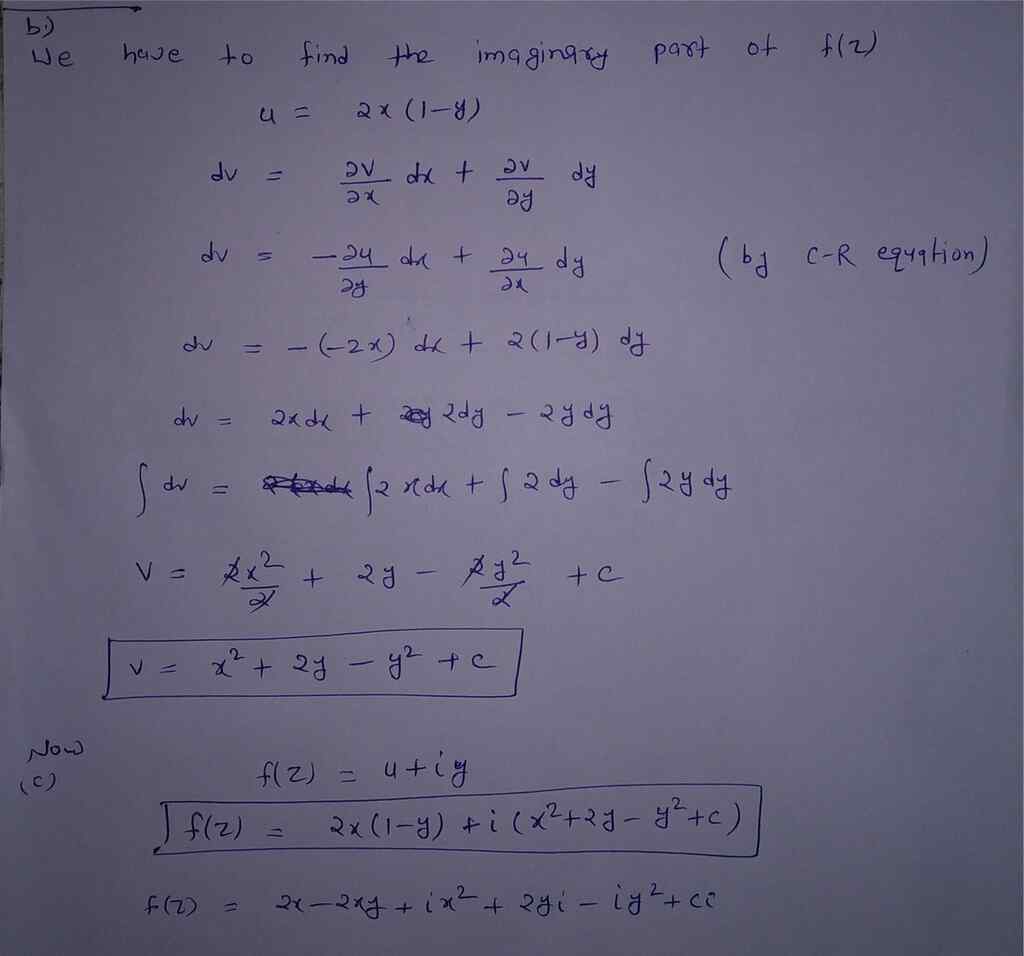 b)
We have to find the imaginary part of f(z)
u = 2x (1-y)
dv = ∂v/∂x dx + ∂v/∂y dy
dv = -∂u/∂y dx + ∂u/∂x dy (by C-R equation)
dv = -(-2x) dx + 2(1-y) dy
dv = 2xdx + 2dy - 2ydy
∫dv = ∫2xdx + ∫2dy - ∫2ydy
v = 2x²/2 + 2y - 2y²/2 + c
v = x² + 2y - y² + c
Now
(c) f(z) = u+iy
f(z) = 2x(1-y) + i(x²+2y-y²+c)
f(z) = 2x-2xy+ix²+2yi-iy²+ci